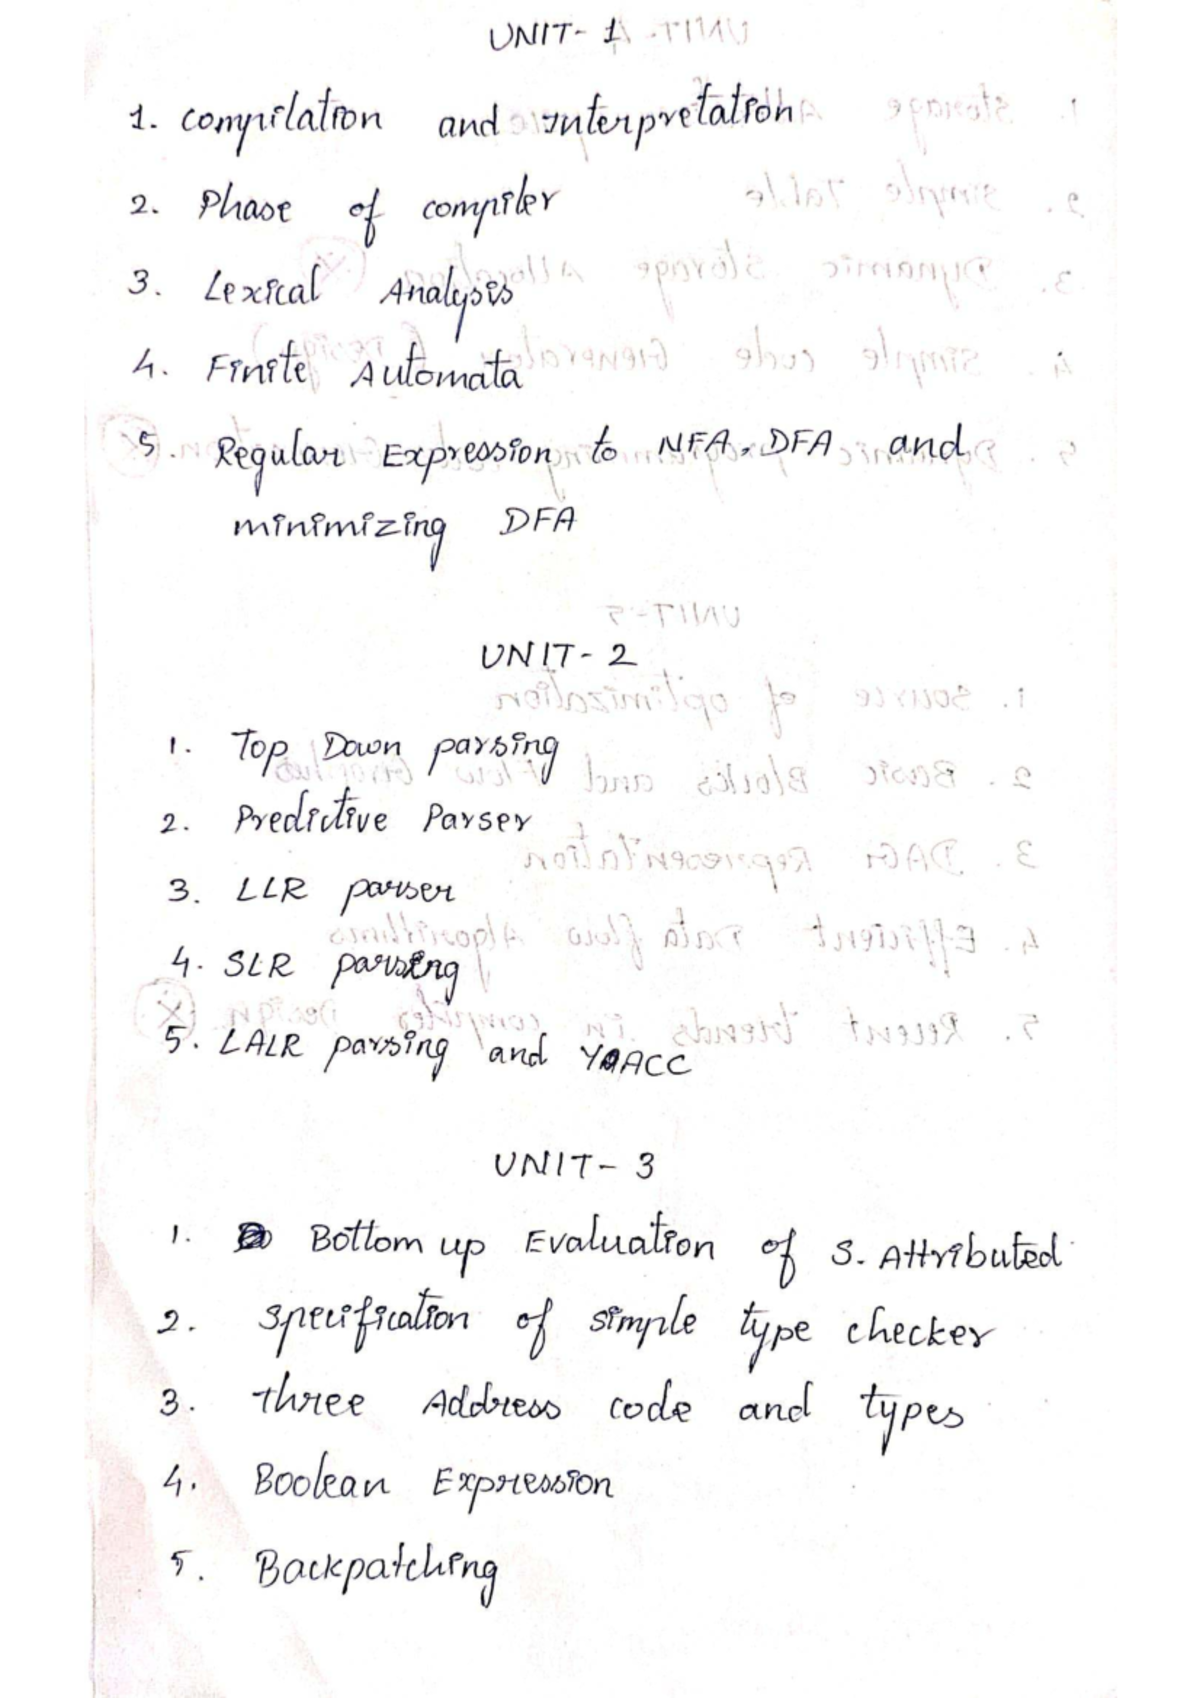 UNIT- 1
1. compilation and Interpretation
2. Phase of compiler
3. Lexical Analysis
4. Finite Automata
5. Regular Expression to NFA, DFA and
minimizing DFA
UNIT- 2
1. Top Down parsing
2. Predictive Parser
3. LLR parser
4. SLR parsing
5. LALR parsing and YAACC
UNIT- 3
1. Bottom up Evaluation of S. Attributed
2. specification of simple type checker
3. three Address code and types
4. Boolean Expression
5. Backpatching